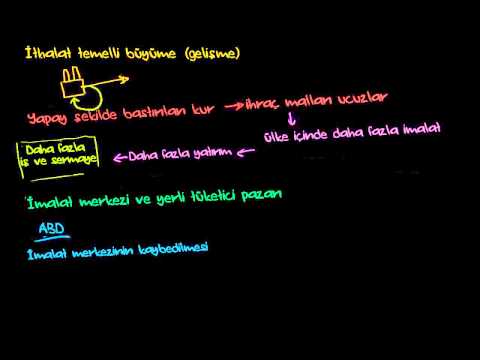 İthalat temelli büyüme (gelişme)
Yapay şekilde bastırılan kur → ihraç malları ucuzlar
ülke içinde daha fazla imalat
Daha fazla yatırım
Daha fazla
iş ve sermaye
İmalat merkezi ve yerli tüketici pazarı
ABD
İmalat merkezinin kaybedilmesi